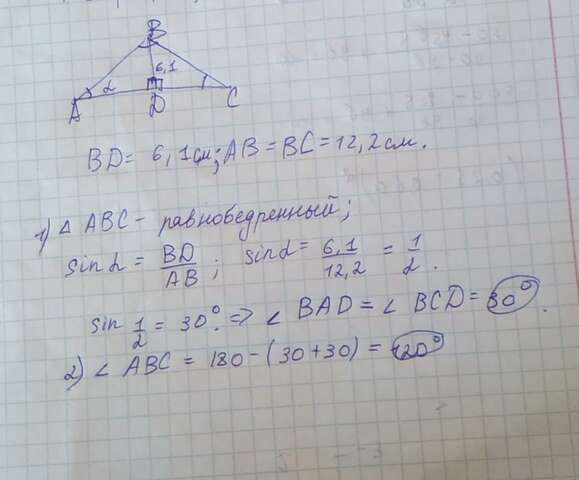 B
6,1
α
A
D
C
BD = 6,1см; AB = BC = 12,2см.
1) △ ABC - равнобедренный;
sinα = BD/AB ; sinα = 6,1/12,2 = 1/2.
sin 1/2 = 30°. ⇒ ∠ BAD = ∠ BCD = 30°.
2) ∠ ABC = 180 - (30 + 30) = 120°